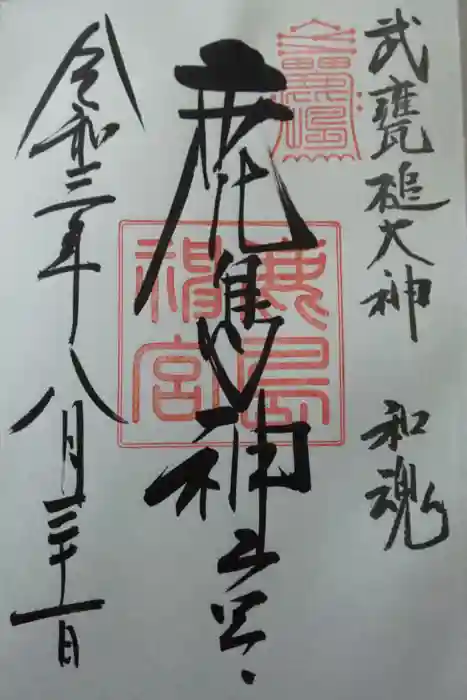 武甕槌大神 和魂
鹿島神宮
鹿島神宮
令和三年八月三十一日